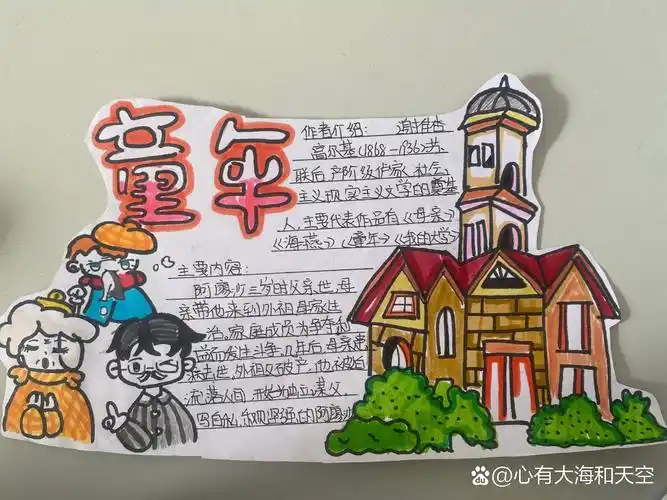 童年
作者介绍: 谢
高尔基(1868-1936)苏
联后产阶级作家,社会
主义现实主义文学的奠基
人,主要代表作品有《母亲》
《海燕》《童年》《我的大学》
主要内容:
阿廖沙三岁时父亲世,母
亲带他来到外祖母家生
活,家庭成员为争夺利
而发生斗争,几年后,母亲
去世,外祖父破产,他被
流落人间,开始独立谋
坚强的阿廖沙
@心有大海和天空